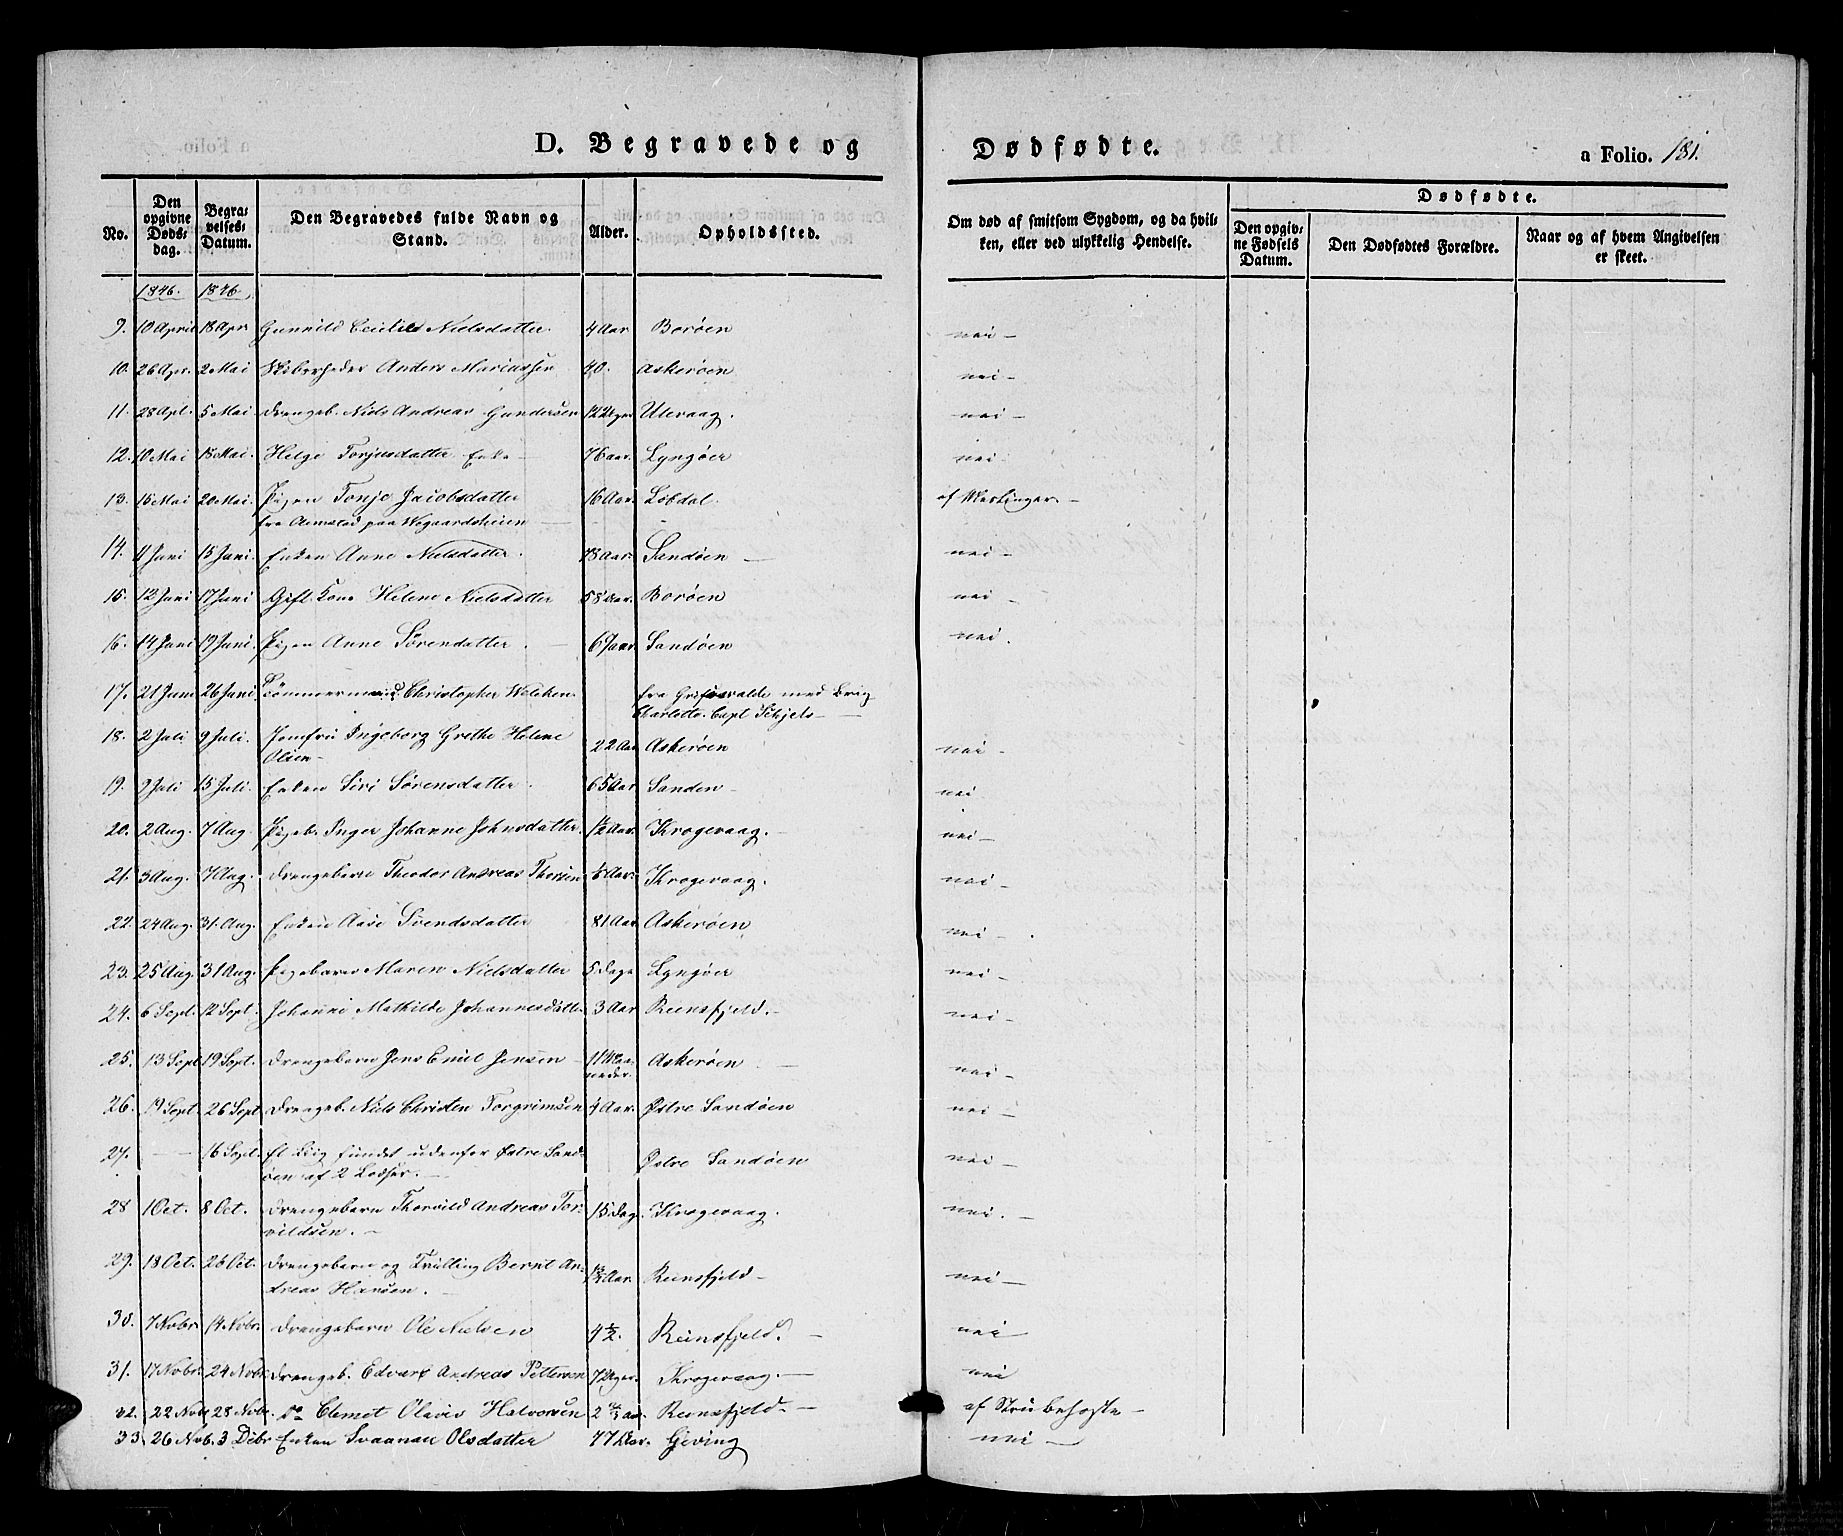 D. Begravede og
Dødfødte.
a Folio. 181.
No.
Den opgivne Døds-dag.
Begra-velses-Datum.
Den Begravedes fulde Navn og Stand.
Alder.
Opholdssted.
Om død af smitsom Sygdom, og da hvil-ken, eller ved ulykkelig Hendelse.
Dødfødte.
Den opgiv-ne Fødsels Datum.
Den Dødfødtes Forældre.
Naar og af hvem Angivelsen er skeet.
1846. 1846.
9. 10 April 18 Apr Gunnild Cecilie Nielsdatter 4 Aar Borøen nei -
10. 26 Apr. 2 Mai Anders Mariussen 40. Askerøen nei -
11. 28 Apl. 5 Mai Drengeb. Niels Andreas Gundersen 12 Uger Ulevaag. nei -
12. 10 Mai 18 Mai. Helge Torjusdatter Enke - 76 aar. Lyngøer nei -
13. 15 Mai 20 Mai. Pigen Tonje Jacobsdatter 16 Aar. Løvdal. af Meslinger. -
fra paa Wegaardsheien
14. 4 Juni 15 Juni. Enken Anne Nielsdatter. 78 Aar. Sandøen - nei -
15. 12 Juni 17 Juni Gift Kone Helene Nielsdatter 58 Aar. Borøen nei -
16. 14 Juni 19 Juni. Pigen Anne Sørensdatter. - 69 aar Sandøen nei.
17. 21 Juni 26 Juni Tømmermand Christopher fra Grifswalde med Brig
Charlotte. Capt -
18. 2 Juli 9 Juli. Jomfru Ingeborg Grethe Helene
Olsen - 22 Aar Askerøen nei -
19. 9 Juli 15 Juli. Enken Siri Sørensdatter. 65 Aar Sanden - nei
20. 2 Aug. 7 Aug. Pigeb. Inger Johanne Johnsdatter. 1/2 Aar. Krogevaag. - nei -
21. 3 Aug. 7 Aug. Drengebarn Theodor Andreas Thorsen Aar. Krogevaag. nei -
22. 24 Aug. 31. Aug. Enken Aase Svendsdatter 81 Aar Askerøen nei -
23. 25 Aug. 31 Aug. Pigebarn Maren Nielsdatter 5 Dage Lyngøer nei -
24. 6 Sept. 12 Sept. Johanne Mathilde Johannesdatter 3 Aar Reinsfjeld. - nei -
25. 13 Sept 19 Sept. Drengebarn Jens Emil Jensen - 11 Maa-
neder. Askerøen - nei -
26. 19 Sept. 26 Sept Drengeb. Niels Christen Torgrimsen 4 Aar. Østre Sandøen nei -
27. - - 16 Sept. Et Liig fundet udenfor Østre Sand-
øen af 2 Lodser. - Østre Sandøen nei -
28 1 Oct. 8 Oct. Drengebarn Thorvild Andreas Tor-
vildsen. - 15 Dag. Krogevaag. nei. -
29. 18 Oct. 26 Oct. Drengebarn og Tvilling Bernt An-
dreas Hansen. - Aar Reinsfjeld - nei -
30. 7 Nobr 14 Nobr. Drengebarn Ole Nielsen 4 1/2. Reinsfjeld. - nei
31. 17 Nobr. 24 Nobr. Drengeb. Edvard Andreas Pettersen 7 Uger. Krogevaag. - nei
32. 22 Nobr 28 Nobr. Do Clemet Olavis Halvorsen 2 aar. Reinsfjeld. - af Strubehoste -
33. 26 Nob. 3 Dcbr Enken Svaanau Olsdatter 77 Aar. Gjeving nei -